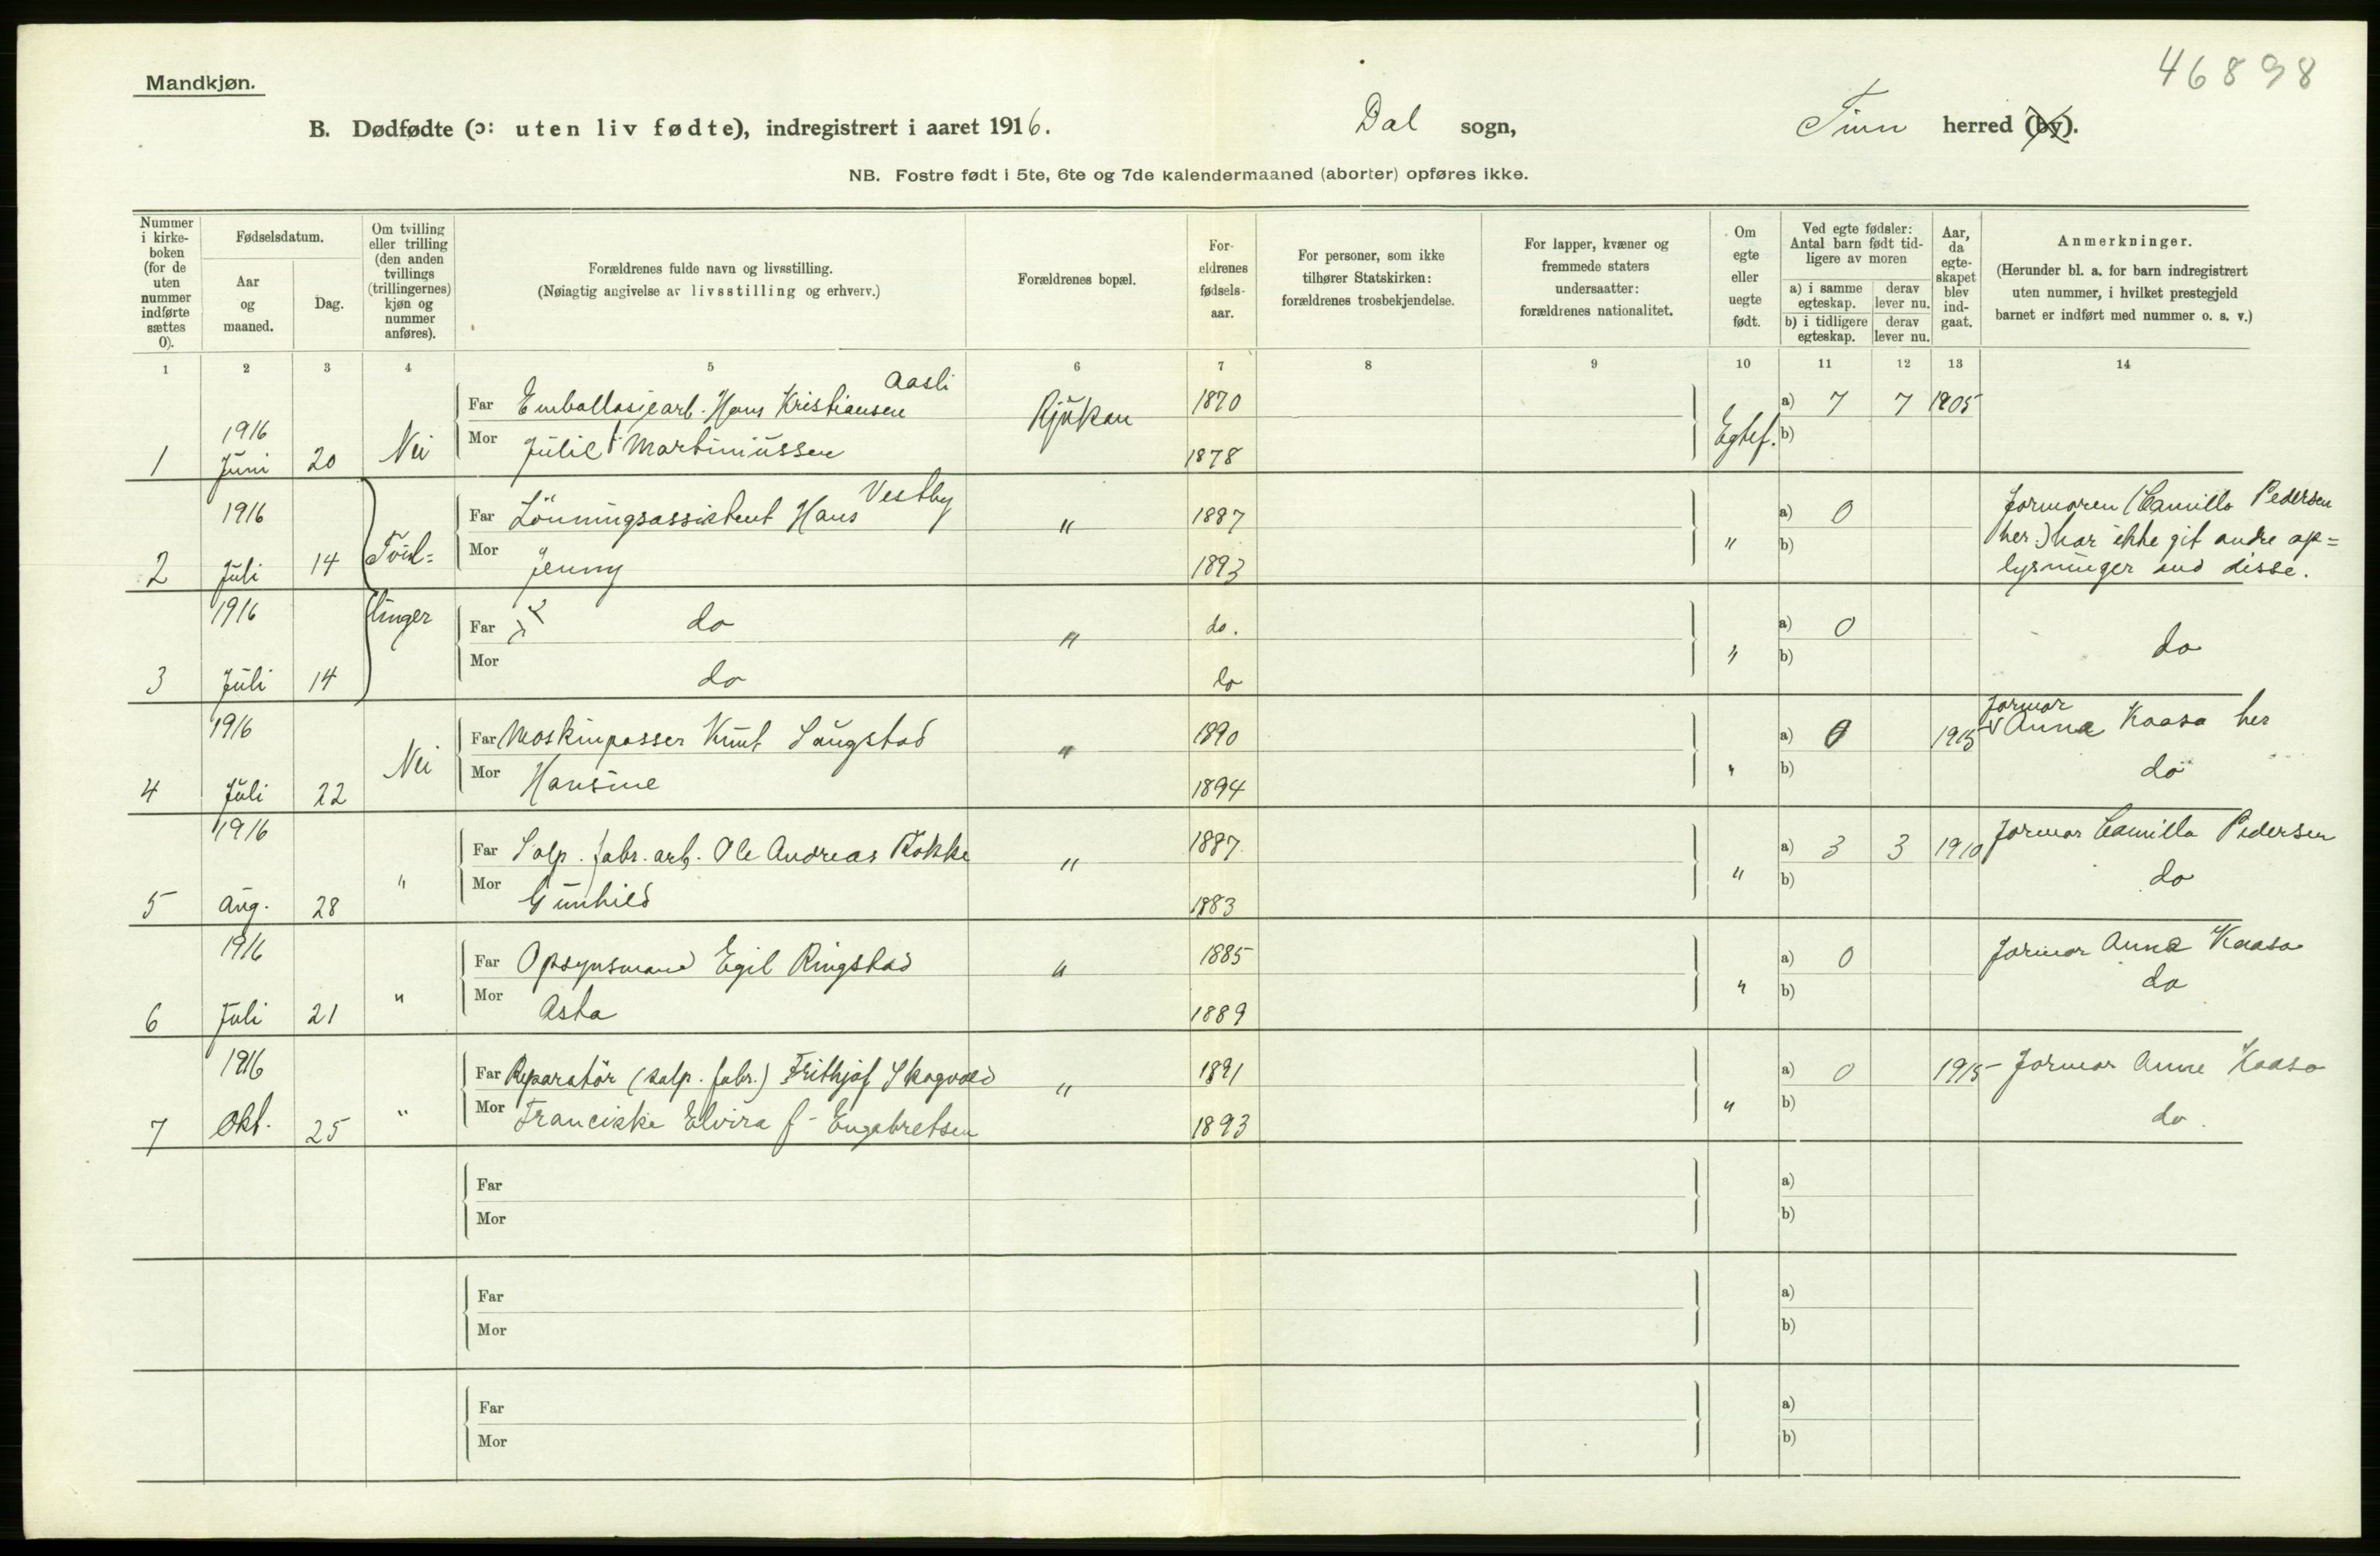 46898
Mandkjøn.
B. Dødfødte (ɔ: uten liv fødte), indregistrert i aaret 1916. Dal sogn, Tinn herred (by).
NB. Fostre født i 5te, 6te og 7de kalendermaaned (aborter) opføres ikke.
Nummer i kirke-boken (for de uten nummer indførte sættes 0).
Fødselsdatum.
Aar og maaned.
Dag.
Om tvilling eller trilling (den anden tvillings (trillingernes) kjøn og nummer anføres).
Forældrenes fulde navn og livsstilling.
(Nøiagtig angivelse av livsstilling og erhverv.)
Forældrenes bopæl.
For-ældrenes fødsels-aar.
For personer, som ikke tilhører Statskirken: forældrenes trosbekjendelse.
For lapper, kvæner og fremmede staters undersaatter: forældrenes nationalitet.
Om egte eller uegte født.
Ved egte fødsler: Antal barn født tid-ligere av moren
a) i samme egteskap. derav lever nu.
b) i tidligere egteskap. derav lever nu.
Aar, da egte-skapet blev ind-gaat.
Anmerkninger.
(Herunder bl. a. for barn indregistrert uten nummer, i hvilket prestegjeld barnet er indført med nummer o. s. v.)
1 2 3 4 5 6 7 8 9 10 11 12 13 14
Aasli
1 1916 Juni 20 Nei Far Emballasjearb. Hans Kristiansen Rjukan 1870 Egtef. a) 7 7 1905
Mor Julie f Martiniussen 1878 b)
Vestby
2 1916 Juli 14 Tvil= Far Lönningsassistent Hans " 1887 " a) 0 Jormoren (Camilla Pedersen
Mor Jenny 1893 b) her) har ikke git andre op=
lysninger end disse.
3 1916 Juli 14 linger Far do " do. " a) 0 do
Mor do do b)
4 1916 Juli 22 Nei Far Maskinpasser Knut Saugstad " 1890 " a) 0 1915 Jormor Anna Kaasa her
Mor Hansine 1894 b) do
5 1916 Aug. 28 " Far Salp. fabr. arb. Ole Andreas Kokke " 1887 " a) 3 3 1910 Jormor Camilla Pedersen
Mor Gunhild 1883 b) do
6 1916 Juli 21 " Far Opsynsmand Egil Ringstad " 1885 " a) 0 Jormor Anna Kaasa
Mor Asta 1889 b) do
7 1916 Okt. 25 " Far Reparatör (salp. fabr.) Frithjof Skogvold " 1891 " a) 0 1915 Jormor Anne Kaasa
Mor Franciske Elvira f. Engebretsen 1893 b) do.
Far a)
Mor b)
Far a)
Mor b)
Far a)
Mor b)